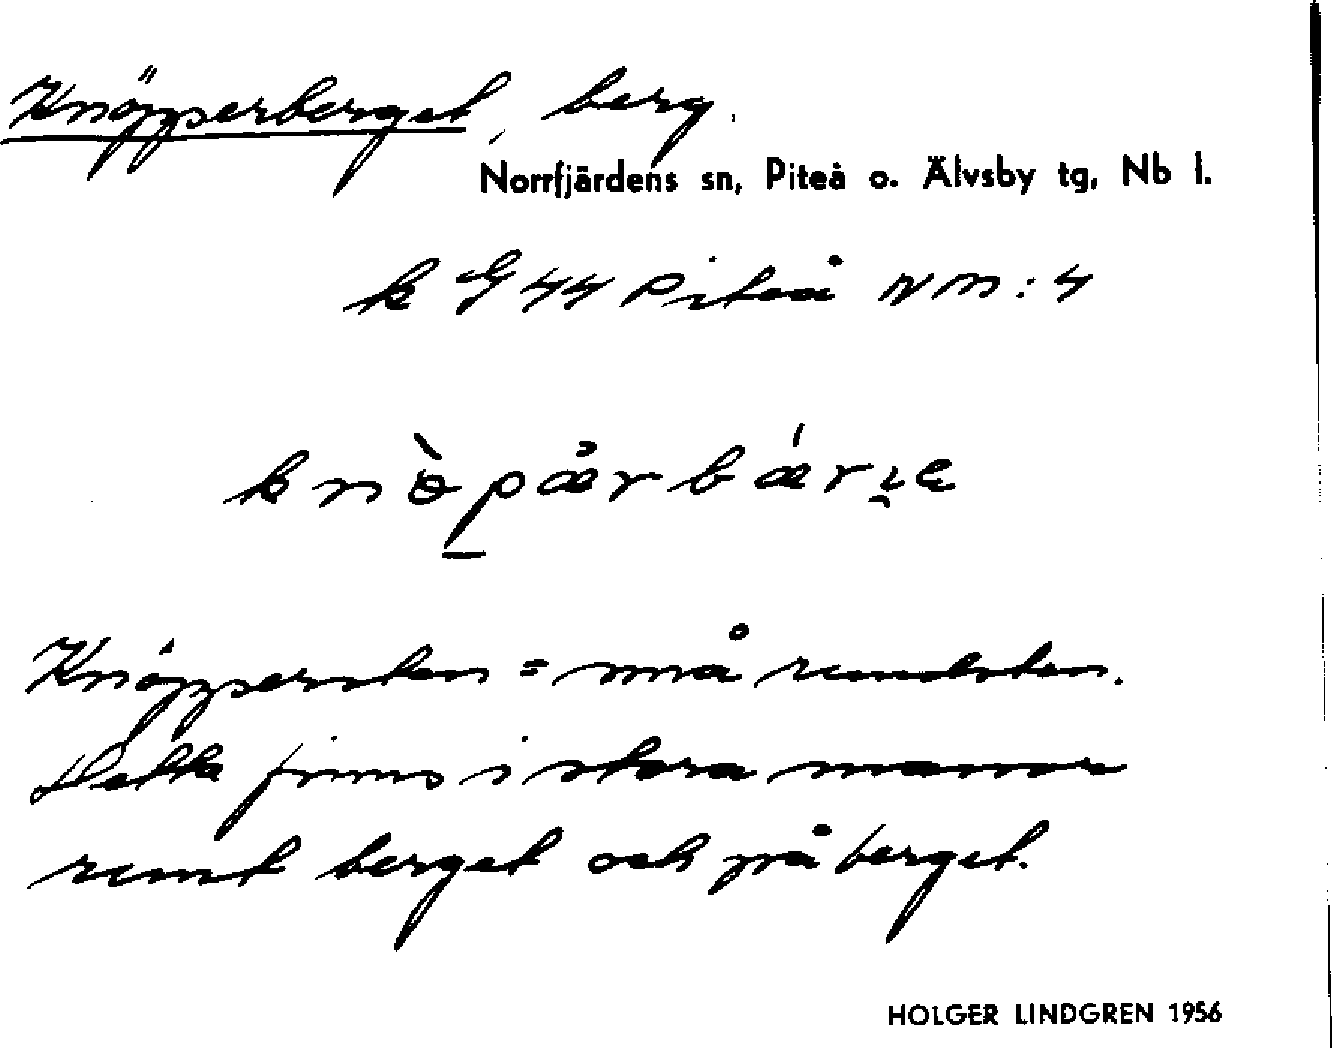 Knöpperberget, berg.
Norrfjärdens sn, Piteå o. Älvsby tg, Nb l.
k G 44 Piteå NM:4
Knöppersten = små rundsten.
Detta finns i stora massor
runt berget och på berget.
HOLGER LINDGREN 1956